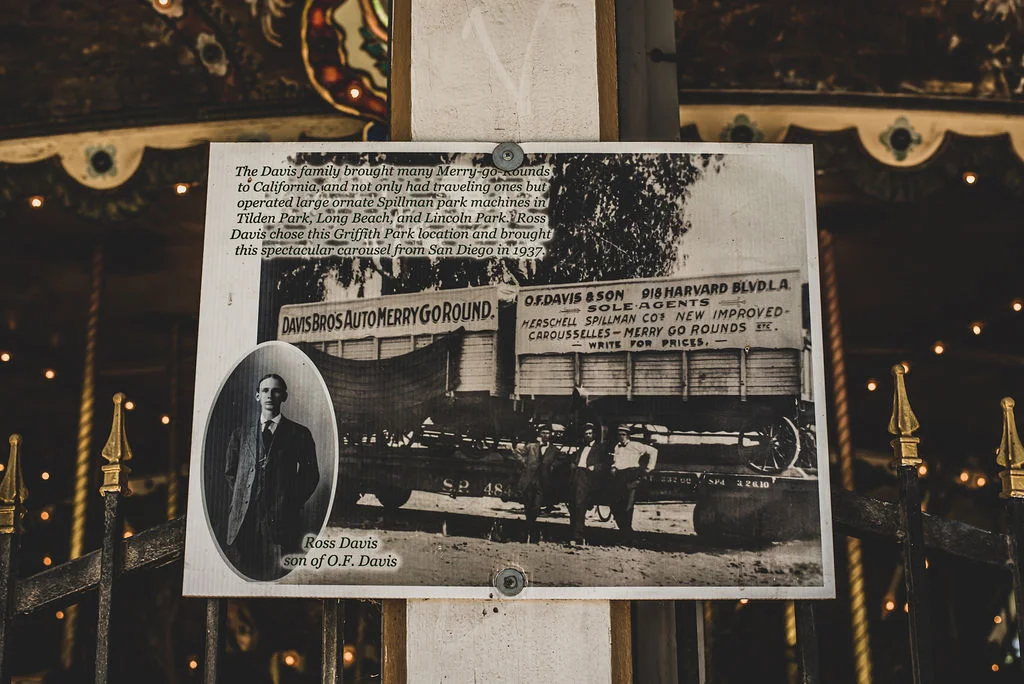 The Davis family brought many Merry-go-Rounds
to California, and not only had traveling ones but
operated large ornate Spillman park machines in
Tilden Park, Long Beach, and Lincoln Park. Ross
Davis chose this Griffith Park location and brought
this spectacular carousel from San Diego in 1937.
DAVIS BRO'S AUTO MERRY GO ROUND.
O.F. DAVIS & SON 918 HARVARD BLVD. L.A.
SOLE AGENTS
HERSCHELL SPILLMAN CO'S NEW IMPROVED-
CAROUSSELLES - MERRY GO ROUNDS ETC.
- WRITE FOR PRICES. -
S.P. 48
SPd 3.26.10
Ross Davis
son of O.F. Davis